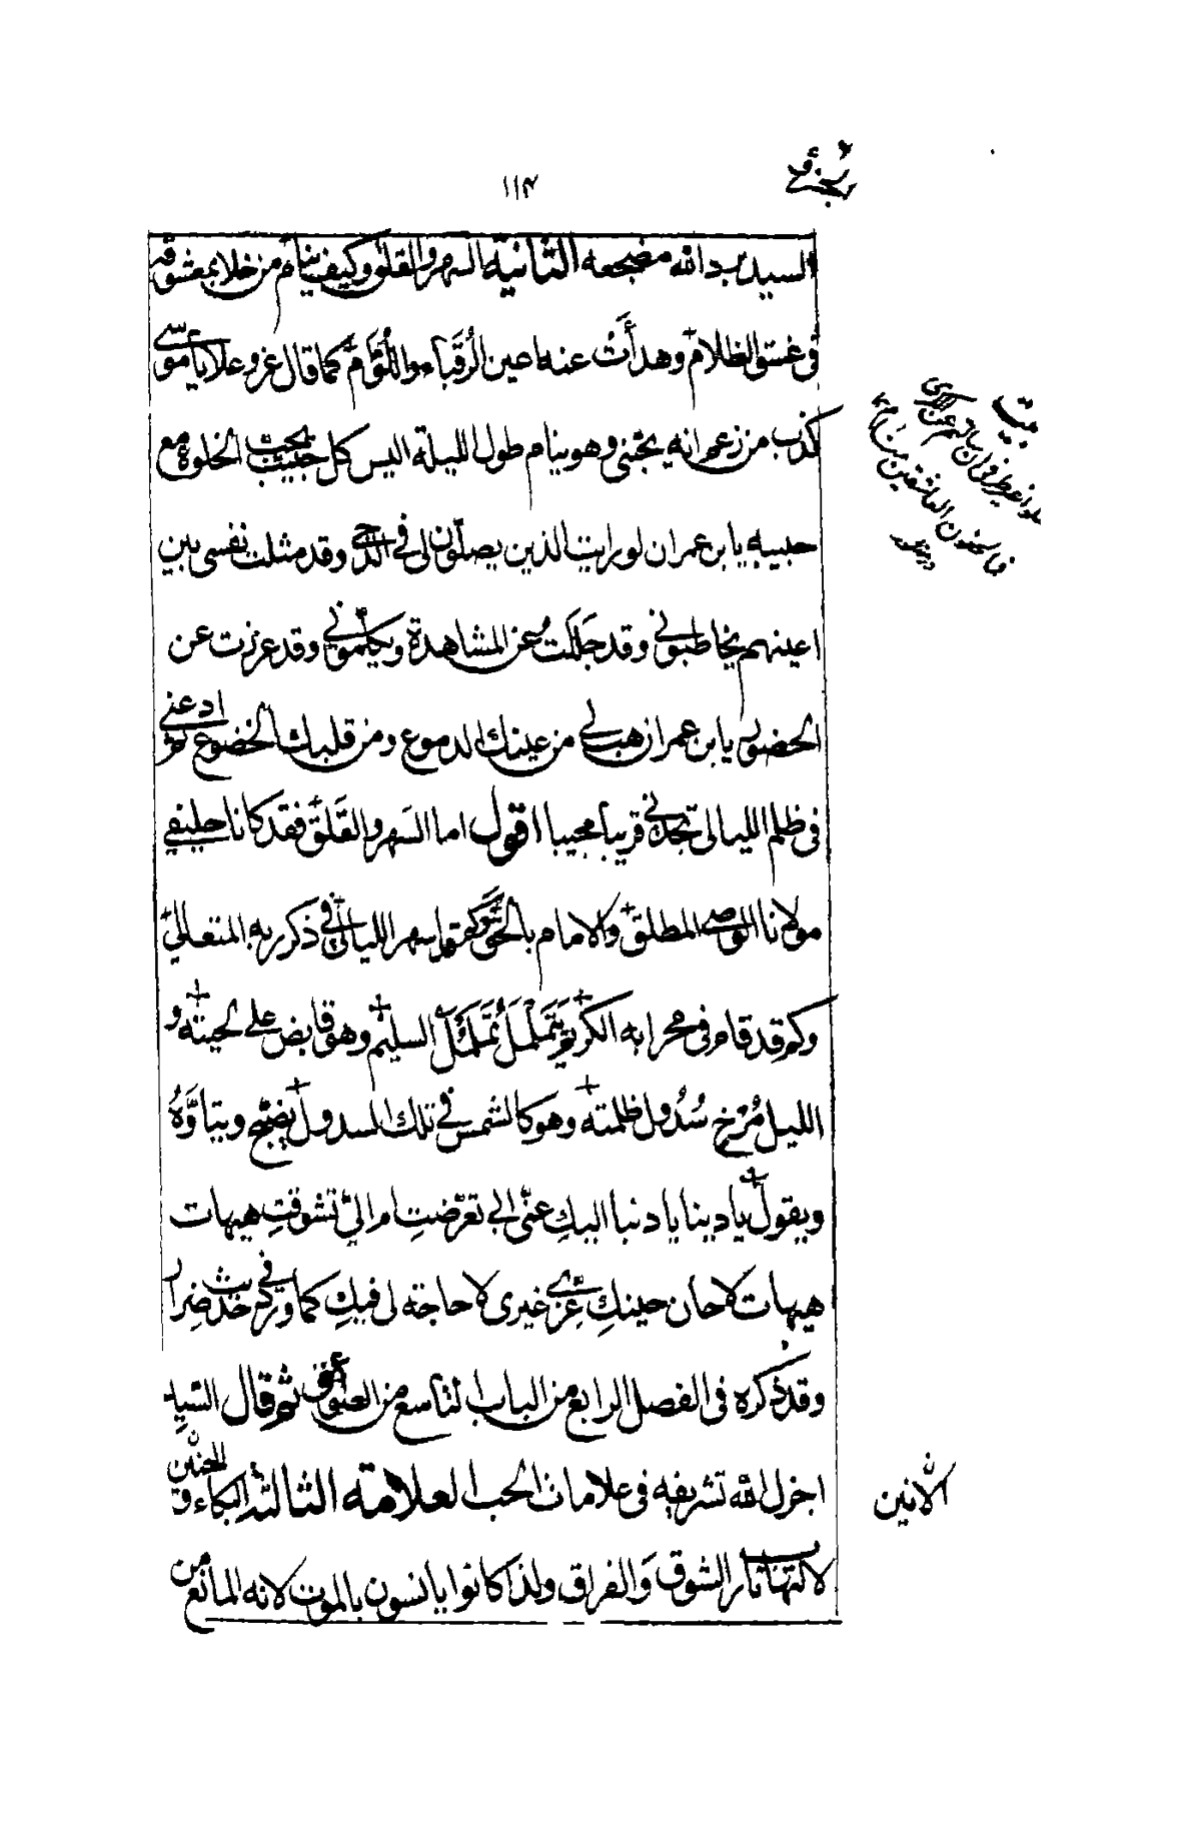 ١١٤
السيد برد الله مضجعه الثانية السهر والقلق وكيف ينام من خلا بمعشوقه
في غسق الظلام وهدأت عنه اعين الرُقباء واللُوّام كما قال عز وعلا يا موسى
كذب من زعم انه يحبني وهو ينام طول الليلة اليس كل حبيب يحب الخلوة مع
حبيبه يا بن عمران لو رايت الذين يصلّون لي في الدجى وقد مثلت نفسي بين
اعينهم يخاطبوني وقد جَلَلتُ عن المشاهدة ويكلّموني وقد عززت عن
الحضور يا بن عمران هب لي من عينك الدموع ومن قلبك الخضوع ثم ادعني
في ظلم الليالي تجدني قريبا مجيبا اقول اما السَهر والقَلَق فقد كانا حليفي
مولانا الوصي المطلق والامام بالحق وكم سهر الليالي في ذكر ربه المتعالي
وكم قد قام في محرابه الكريم يَتَمَلْمَلُ تَمَلْمُلَ السليم وهو قابض على لحيته و
الليل مُرْخٍ سُدُول ظلمته وهو كالشمس في تلك السدول يضجّ ويتأوَّهُ
ويقول يا دينا يا دنيا اليكِ عنّي الي تعرّضتِ ام اليّ تشوقتِ هيهات
هيهات لا حان حينكِ غرّي غيري لا حاجة لي فيكِ كما ورد في حديث ضِرار
وقد ذكره في الفصل الرابع من الباب التاسع من العنوان ثم قال السَيِد
اجزل الله تشريفه في علامات الحب العلامة الثالثة البكاء والحنين
لالتهاب نار الشوق والفراق ولذا كانوا يانسون بالموت لانه المانع من
بيت
الانين